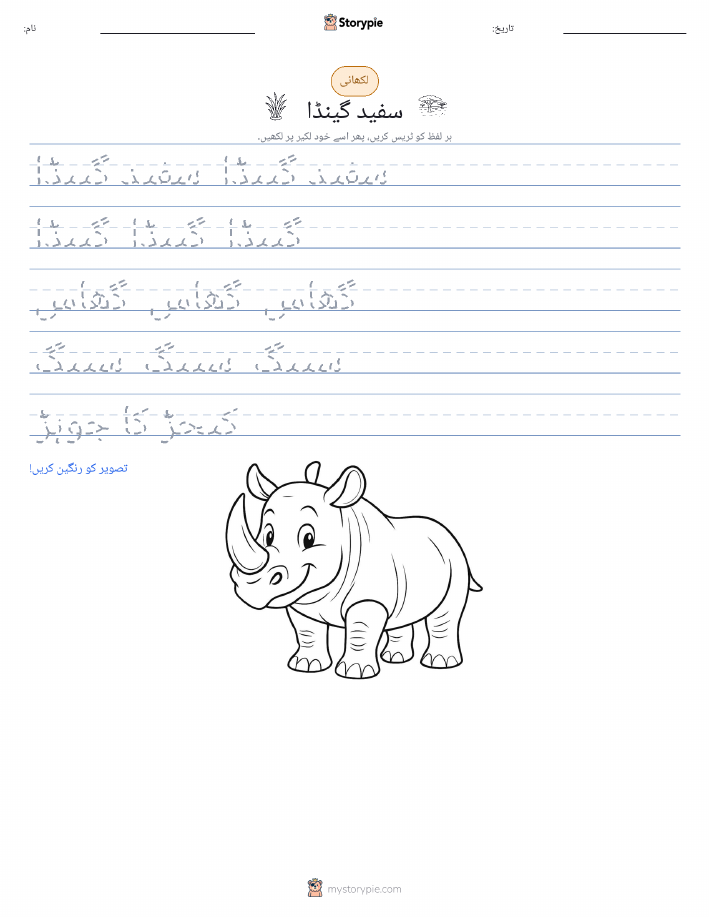 Storypie
نام:
تاریخ:
لکھائی
سفید گینڈا
ہر لفظ کو ٹریس کریں، پھر اسے خود لکیر پر لکھیں۔
سفید گینڈا سفید گینڈا
گینڈا گینڈا گینڈا
گھاس گھاس گھاس
سینگ سینگ سینگ
کیچڑ کا جوہڑ
تصویر کو رنگین کریں!
mystorypie.com